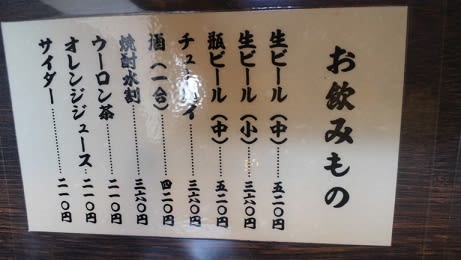 お飲みもの
生ビール（中）………五二〇円
生ビール（小）………三六〇円
瓶ビール（中）………五二〇円
チューハイ………三六〇円
酒（一合）………四二〇円
焼酎水割………三六〇円
ウーロン茶………二一〇円
オレンジジュース………二一〇円
サイダー………二一〇円